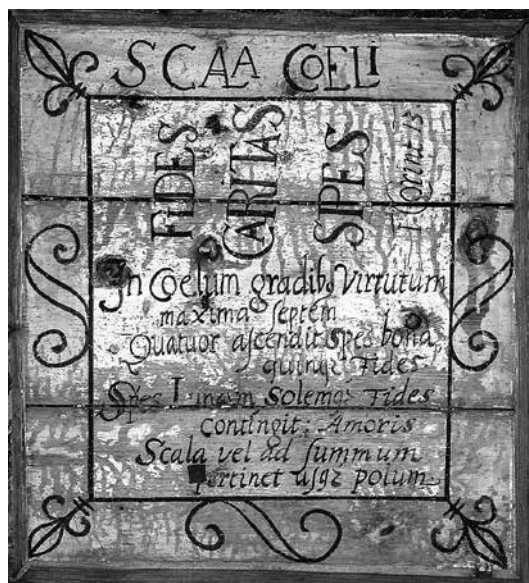 SCALA COELI
FIDES
CARITAS
SPES
I Corint 13.
In Coelum gradibꝰ Virtutum
maxima septem
Quatuor ascendit Spes bona
quinqꝫ Fides
Spes Lunam Solemqꝫ Fides
contingit: Amoris
Scala vel ad summum
pertinet usqꝫ polum